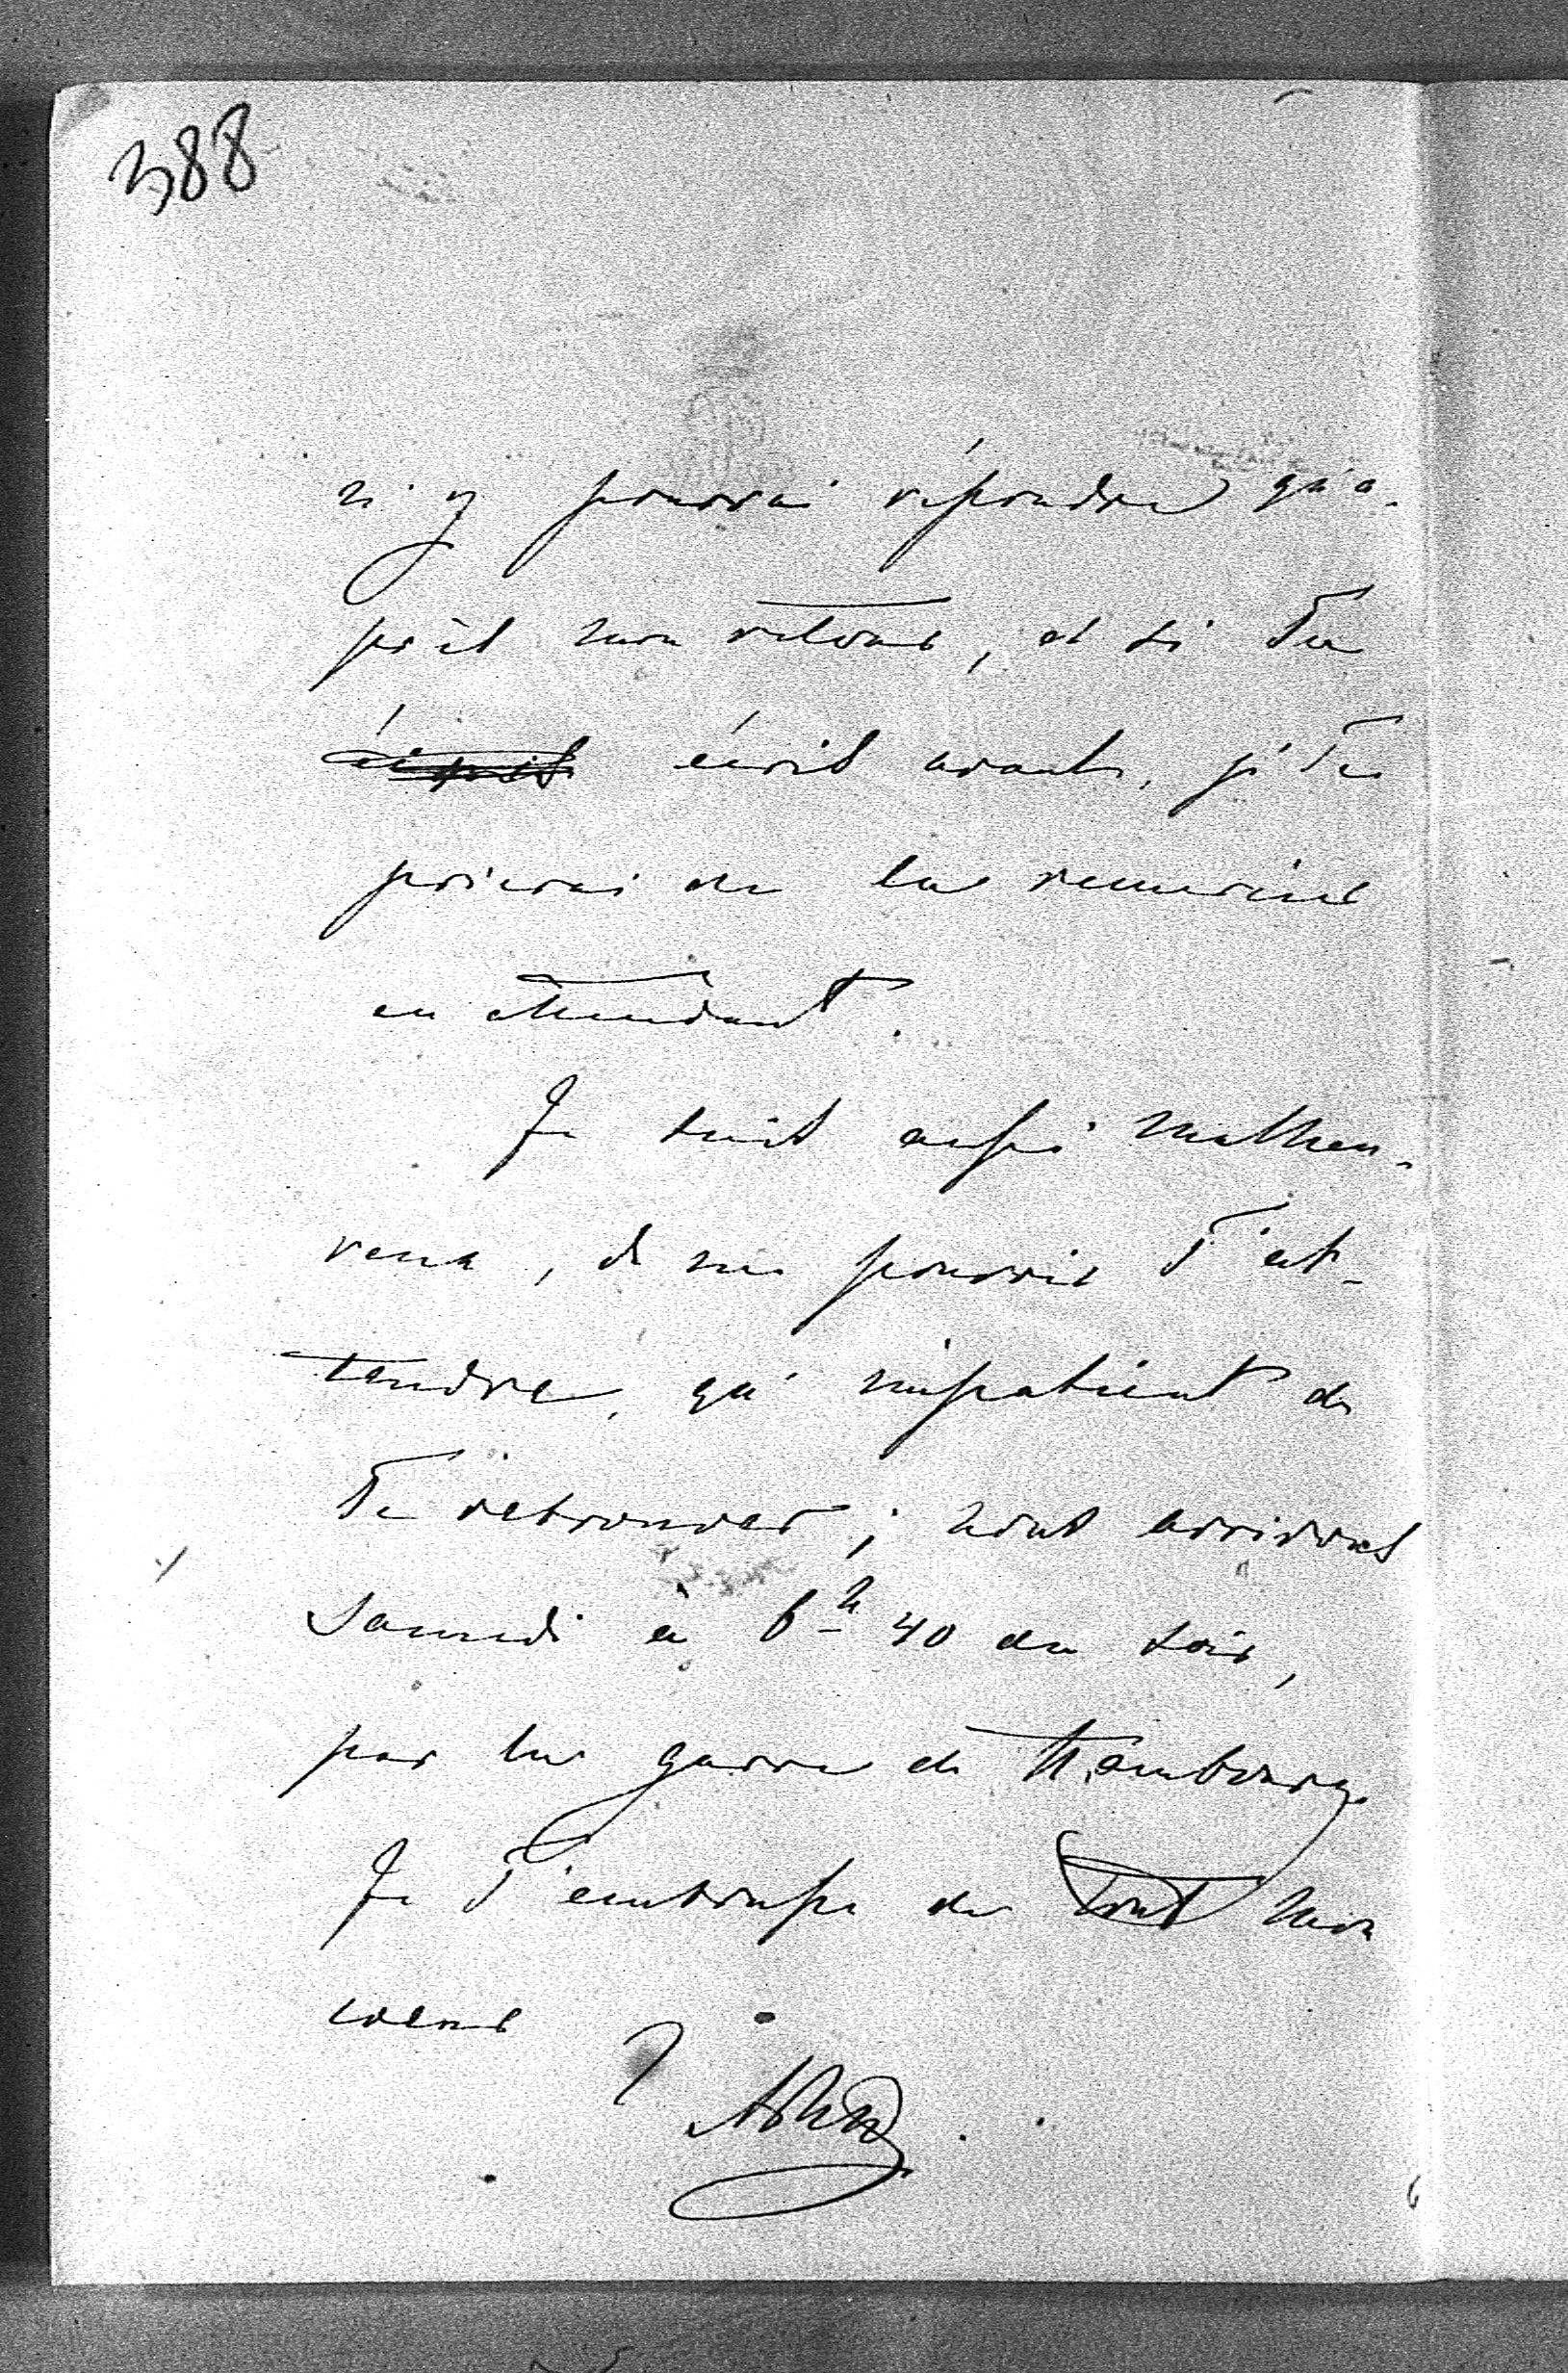 388
n'y pourrai répondre qu'a-
près mon retour, et si Tu
écris avant, je Te
prierai de la remercier
en attendant.
Je suis aussi malheu-
reux, de ne pouvoir T'at-
tendre, qu'impatient de
Te retrouver; nous arrivons
Samedi à 6h 40 du soir,
par la garre de Hambourg.
Je T'embrasse de tout mon
coeur